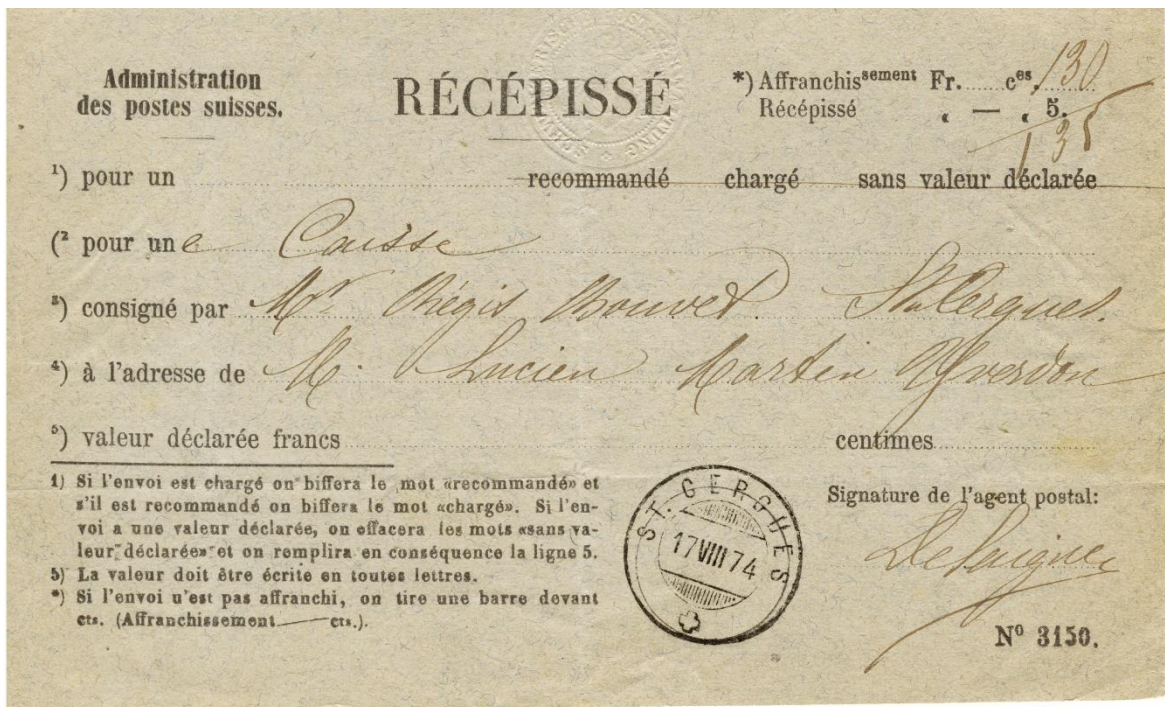 Administration
des postes suisses.
RÉCÉPISSÉ
*) Affranchissement Fr. ces. 130
Récépissé „ — „ 5.
135
¹) pour un recommandé chargé sans valeur déclarée
(² pour une Caisse
³) consigné par Mr Régis Bouvet. St Cergues.
⁴) à l'adresse de M. Lucien Martin Yverdon
⁵) valeur déclarée francs centimes
1) Si l'envoi est chargé on biffera le mot «recommandé» et
s'il est recommandé on biffera le mot «chargé». Si l'en-
voi a une valeur déclarée, on effacera les mots «sans va-
leur déclarée» et on remplira en conséquence la ligne 5.
5) La valeur doit être écrite en toutes lettres.
*) Si l'envoi n'est pas affranchi, on tire une barre devant
cts. (Affranchissement — cts.).
ST. CERGUES
17 VIII 74
Signature de l'agent postal:
Nº 3150.